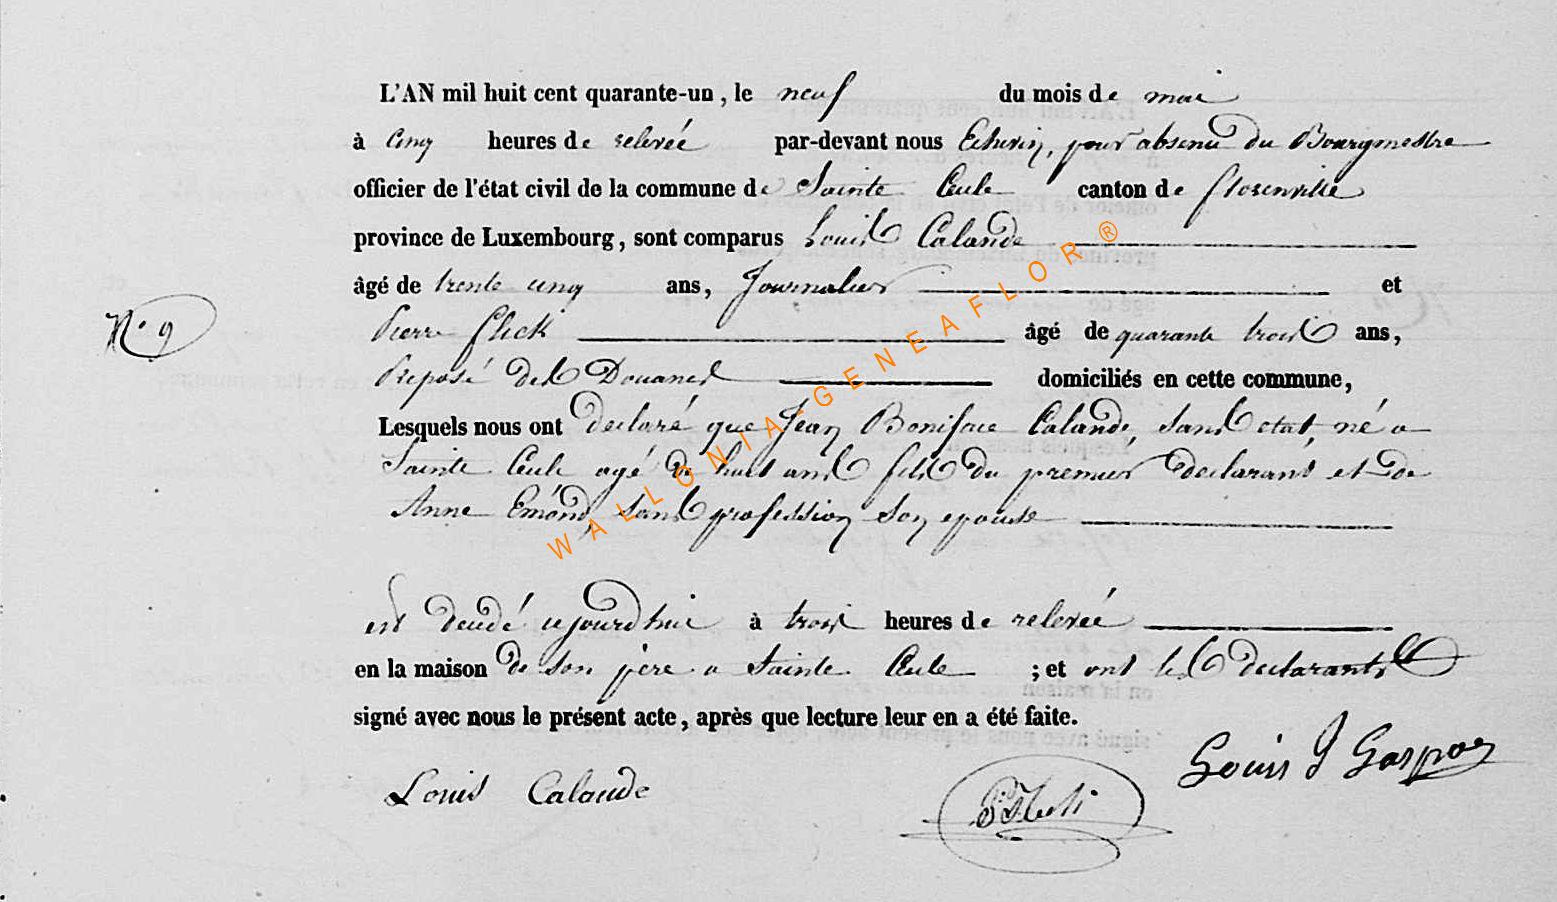 L'AN mil huit cent quarante-un, le neuf du mois de mai
à cinq heures de relevée par-devant nous Echevin, pour absence du Bourgmestre
officier de l'état civil de la commune de Sainte Cecile canton de florenville
province de Luxembourg, sont comparus Louis Calande
âgé de trente cinq ans, Journalier et
N° 9
Pierre flick âgé de quarante trois ans,
Preposé des Douanes domiciliés en cette commune,
Lesquels nous ont declaré que Jean Boniface Calande, sans etat, né a
Sainte Cecile agé de huit ans fils du premier declarant et de
Anne Emond, sans profession son epouse
est decedé cejourdhui à trois heures de relevée
en la maison de son père a Sainte Cecile ; et ont les declarants
signé avec nous le présent acte, après que lecture leur en a été faite.
Louis Calande
Louis J Gaspar
WALLONIA-GENEAFLOR®